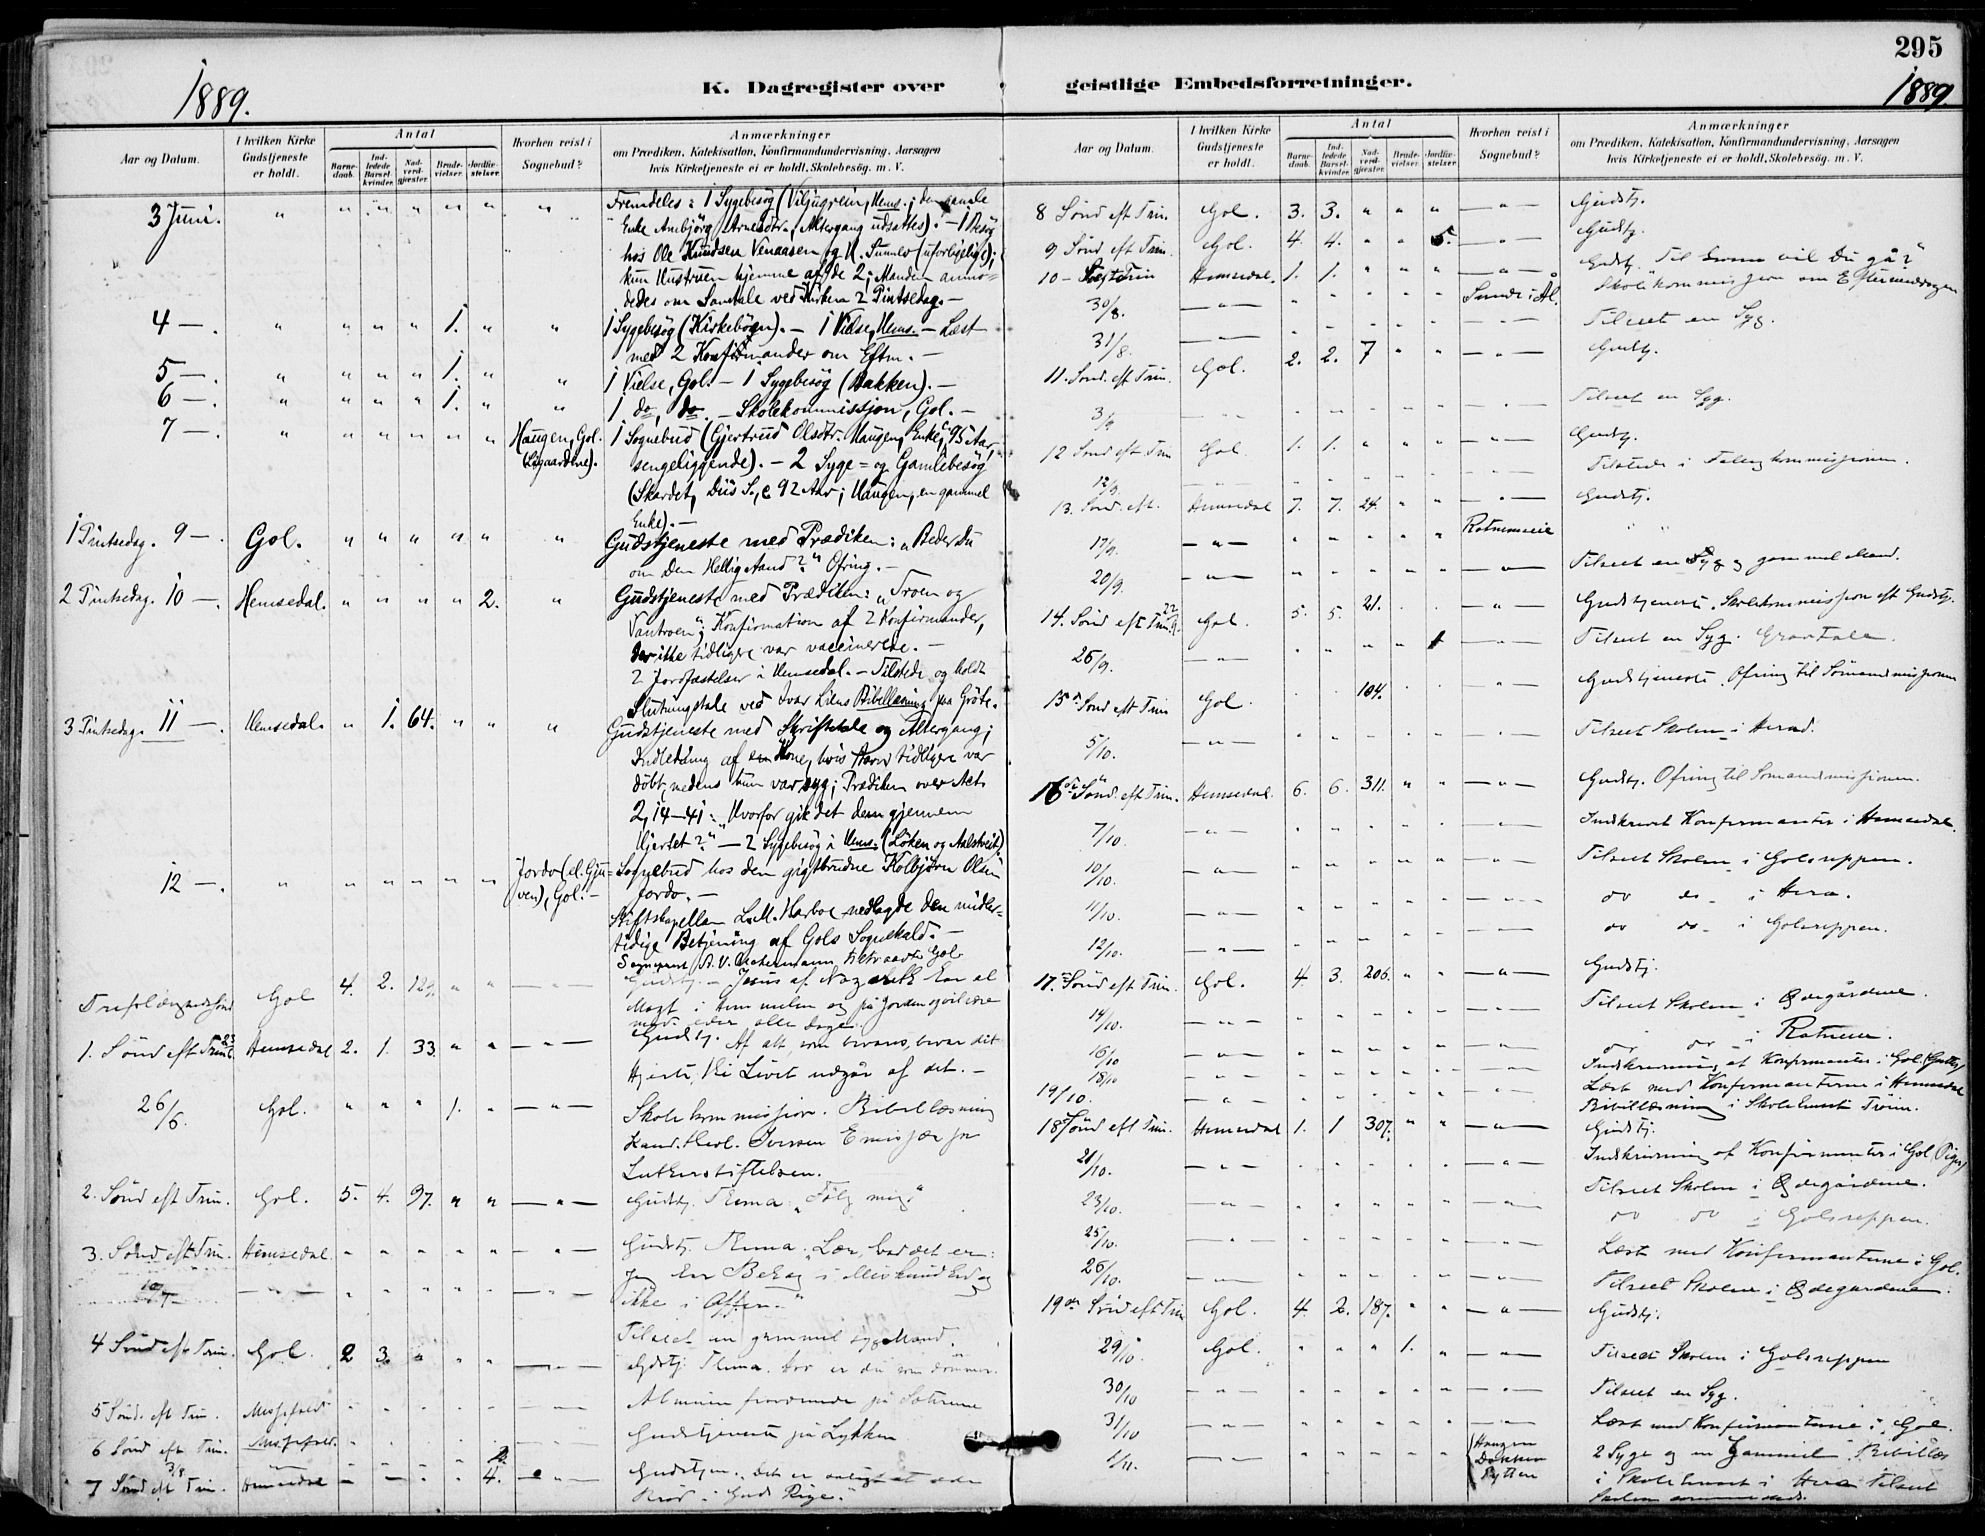 295
1889.
K. Dagregister over geistlige Embedsforretninger.
1889
Aar og Datum.
I hvilken Kirke Gudstjeneste er holdt.
Antal
Barnedaab.
Indledede Barselkvinder.
Nadverdgjæster.
Brudevielser.
Jordfæstelser.
Hvorhen reist i Sognebud?
Anmærkninger
om Prædiken, Katekisation, Konfirmandundervisning, Aarsagen
hvis Kirketjeneste ei er holdt, Skolebesøg. m. V.
3 Juni. " " " " " " " Fremdeles: 1 Sygebesøg (Viljugrein, Hems.; den gamle
Enke Ambjörg Arnesdtr., Altergang udsattes). – 1 Besøg
hos Ole Knudsen Venaasen og H. Sunnlo (uforligelige);
kun Hustruen hjemme af de 2; Manden anmo-
dedes om Samtale ved Kirken 2 Pintsedag. –
4 –. " " " " 1. " " 1 Sygebesøg (Kirkebøen). – 1 Vielse, Hems. – Læst
med 2 Konfirmander om Eftm. –
5 –. " " " " 1. " " 1 Vielse, Gol. – 1 Sygebesøg (Bakken). –
6 –. " " " " 1. " " 1 do, do. – Skolekommissjon, Gol. –
7 –. " " " " " " Haugen, Gol. 1 Sognebud (Gjertrud Olsdtr. Haugen, Enke, c 95 Aar,
sengeliggende). – 2 Syge= og Gamlebesøg
(Skardet, Diis S., c 92 Aar; Haugen, en gammel
Enke). –
1 Pintsedag. 9 –. Gol. " " " " " " Gudstjeneste med Prædiken: „Beder Du
om Den Hellig Aand?" Ofring. –
2 Pintsedag. 10 –. Hemsedal. " " " " 2. " Gudstjeneste med Prædiken: „Troen og
Vantroen"; Konfirmation af 2 Konfirmander,
der ikke tidligere var vaccinerede. –
2 Jordfæstelser i Hemsedal. – Tilstede og holdt
Slutningstale ved Ivar Liens Bibellæsning paa Gröte.
3 Pintsedag. 11 –. Hemsedal. " 1. 64. " " " Gudstjeneste med Skriftetale og Altergang;
Indledning af en Kone, hvis Barn tidligere var
döbt, medens hun var syg; Prædiken over Act.
2, 14–41: „Hvorfor gik det dem gjennem
Hjertet?" – 2 Sygebesøg i Hems. (Löken og Aalstveit).
12 –. " " " " " " Jordo (el. Gjuven), Gol. – Sognebud hos den gigtbrudne Kolbjörn Olsen
Jordo. –
Stiftskapellan L. M. Harboe nedlagde den midler-
tidige Betjening af Gols Sognekald. –
Sogneprest A. V. Uchermann tiltraadte Gol
Trefoldighedssönd Gol 4. 2. 129. " " – " – Gudstj. – Jesus af Nazareth har al
Magt i himmelen og på Jorden og vil være
med eder alle dage
1. Sönd eft Trin 23/6 Hemsedal 2. 1. 33. " " – " – Gudstj. Af alt, som bevares, bevar dit
Hjerte, thi Livet udgår af det. –
26/6. Gol. " " " 1. " – " – Skolekommission. Bibellæsning
Kand. theol. Iversen Emissær for
Lutherstiftelsen.
2. Sönd eft Trin. Gol. 5. 4. 97. " " – " – Gudstj. Thema: „Fölg mig"
3. Sönd eft Trin. Hemsedal " " " " " – " – Gudstj. Thema „Lær, hvad det er:
Jeg har Behag i Miskundhed og
ikke i Offer."
Tilseet en gammel syg Mand.
4 Sönd eft Trin. Gol. 2 3. " " " – " – Gudstj. Thema. hvo er du som dömmer.
Almuen fraværende på Sætrene
5 Sönd. eft Trin. Messefald
6 Sönd eft Trin. Messefald. Gudstjeneste på Lykken
7 Sönd eft Trin. Hemsedal – – " " 4. – " – Gudstjen. Det er saligt at æde
Bröd i Guds Rige."
Aar og Datum.
I hvilken Kirke Gudstjeneste er holdt.
Antal
Barnedaab.
Indledede Barselkvinder.
Nadverdgjæster.
Brudevielser.
Jordfæstelser.
Hvorhen reist i Sognebud?
Anmærkninger
om Prædiken, Katekisation, Konfirmandundervisning, Aarsagen
hvis Kirketjeneste ei er holdt, Skolebesøg. m. V.
8 Sönd eft Trin. Gol. 3. 3. " " " – " – Gudstj.
9 Sönd eft Trin. Gol. 4. 4. " " 5. – " – Gudstj.
10 – Trin Hemsedal. 1. 1. " " " – " – Gudstj. Til hvem vil Du gå?"
30/8. – " – Sunde i Ål. Skolekommissjon om Eftermiddagen
31/8. – " – Tilseet en Syg.
11. Sönd. eft Trin. Gol. 2. 2. 7 " " – " – Gudstj.
3/9 Tilseet en Syg.
12 Sönd eft Trin Gol 1. 1. " " " – " – Gudstj.
12/9. Tilstede i kommissionen.
13. Sönd. eft. Hemsedal 7. 7. 24. " " – " – Gudstj.
17/9. – " – Rotnemeie " "
20/9. – " – Tilseet en Syg og gammel Mand.
14. Sönd eft Trin 22/9. Gol. 5. 5. 21. – " – Gudstjeneste. Skolekommission eft Gudstj.
26/9. – " – 1 – " – Tilseet en Syg. Gravtale.
15de Sönd eft Trin Gol. 104. – " – Gudstjeneste. Ofring til Sömandsmissjonen
5/10. – " – Tilseet Skolen i Herad.
16de Sönd. eft Trin. Hemsedal. 6. 6. 311. " " – " – Gudstj. Ofring til Sömandsmissjonen.
7/10. – " – Indskrevet Konfirmanter i Hemsedal.
10/10. – " – Tilseet Skolen i Golsreppen.
11/10. – " – do do i Hera.
12/10. – " – do do i Golsreppen.
17. Sönd eft Trin. Gol. 4. 3. 206. " " – " – Gudstj.
14/10. – " – Tilseet Skolen i Ödegårdene.
16/10 – " – do do i Rotneim.
18/10 – " – Indskrivning af Konfirmanter i Gol. (Gutter)
19/10. – " – Læst med Konfirmanterne i Hemsedal
Bibellæsning i Skolehuset Tröim.
18 Sönd eft Trin. Hemsedal 1. 1 307. " " – " – Gudstj.
21/10. – " – Indskrivning af Konfirmanter i Gol Piger)
23/10. – " – Tilseet Skolen i Ödegårdene.
25/10. – " – do do i Golsreppen.
26/10. – " – Læst med Konfirmanterne i Gol.
Tilseet Skolen i Ödegårdene.
19de Sönd eft Trin Gol. 4. 2. 187. " " – " – Gudstj.
29/10. Gol. " " " 1. " – " – Tilseet Skolen i Golsreppen
30/10 – " – Tilseet en Syg.
31/10 – " – Læst med Konfirmanterne i Gol.
1/11. – " – Haugen Bakken 2 Syge og en Gammel. Bibellæs
i Skolehuset i Hera Tilseet
Skolen